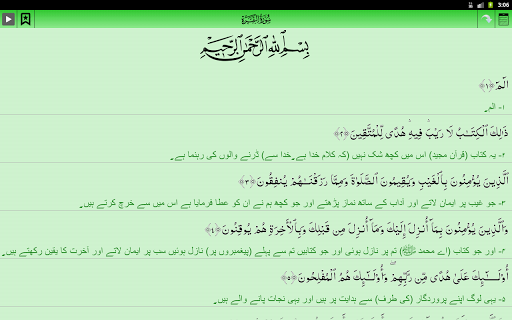 3:06
سُورَةُ البَقَرَةِ
بِسْمِ ٱللَّهِ ٱلرَّحْمَٰنِ ٱلرَّحِيمِ
الٓمٓ ﴿١﴾
١- الم۔
ذَٰلِكَ ٱلْكِتَـٰبُ لَا رَيْبَ ۛ فِيهِ ۛ هُدًى لِّلْمُتَّقِينَ ﴿٢﴾
٢- یہ کتاب (قرآن مجید) اس میں کچھ شک نہیں (کہ کلام خدا ہے۔خدا سے) ڈرنے والوں کی رہنما ہے۔
ٱلَّذِينَ يُؤْمِنُونَ بِٱلْغَيْبِ وَيُقِيمُونَ ٱلصَّلَوٰةَ وَمِمَّا رَزَقْنَـٰهُمْ يُنفِقُونَ ﴿٣﴾
٣- جو غیب پر ایمان لاتے اور آداب کے ساتھ نماز پڑھتے اور جو کچھ ہم نے ان کو عطا فرمایا ہے اس میں سے خرچ کرتے ہیں۔
وَٱلَّذِينَ يُؤْمِنُونَ بِمَآ أُنزِلَ إِلَيْكَ وَمَآ أُنزِلَ مِن قَبْلِكَ وَبِٱلْأَخِرَةِ هُمْ يُوقِنُونَ ﴿٤﴾
٤- اور جو کتاب (اے محمد ﷺ) تم پر نازل ہوئی اور جو کتابیں تم سے پہلے (پیغمبروں پر) نازل ہوئیں سب پر ایمان لاتے اور آخرت کا یقین رکھتے ہیں۔
أُو۟لَـٰٓئِكَ عَلَىٰ هُدًى مِّن رَّبِّهِمْ ۖ وَأُو۟لَـٰٓئِكَ هُمُ ٱلْمُفْلِحُونَ ﴿٥﴾
٥- یہی لوگ اپنے پروردگار (کی طرف) سے ہدایت پر ہیں اور یہی نجات پانے والے ہیں۔